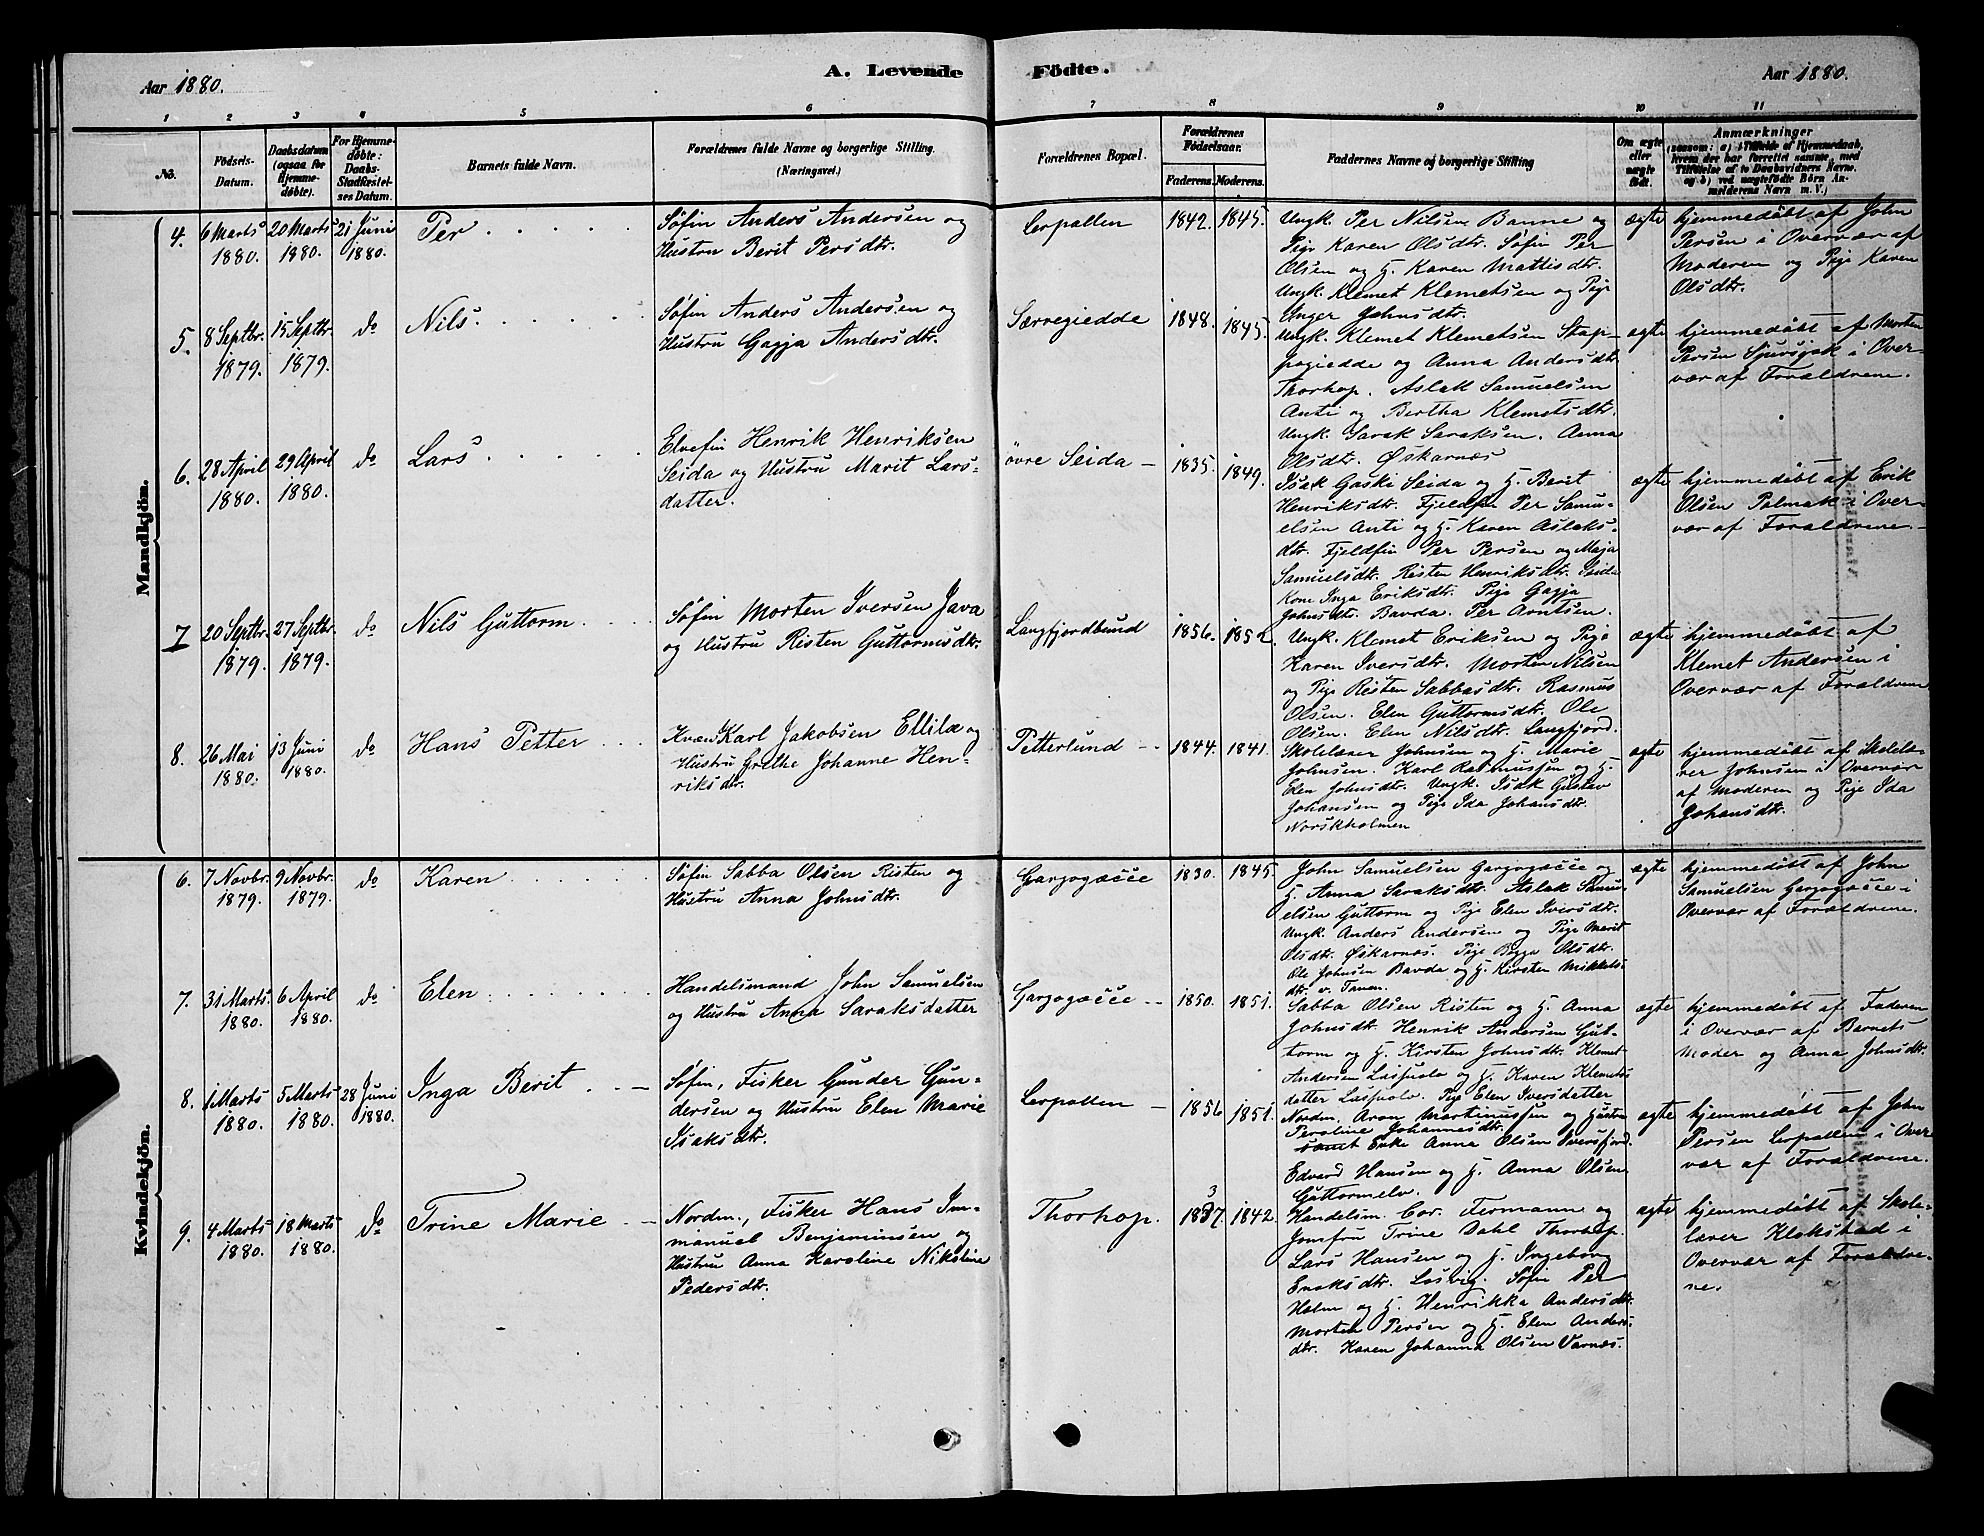 Aar 1880.
A. Levende
Födte.
Aar 1880.
1 2 3 4 5 6 7 8 9 10 11
No.
Födsels-
Datum.
Daabsdatum
(ogsaa for
Hjemme-
döbte).
For Hjemme-
døbte:
Daabs-
Stadfæstel-
ses Datum.
Barnets fulde Navn.
Forældrenes fulde Navne og borgerlige Stilling.
(Næringsvei.)
Forældrenes Bopæl.
Forældrenes
Födselsaar.
Faderens. Moderens.
Faddernes Navne og borgerlige Stilling
Om ægte
eller
uægte
født.
Anmærkninger
(saasom: a) i Tilfælde af Hjemmedaab,
hvem der har forrettet samme, med
Tilföielse af to Daabsvidners Navne,
og b) ved uægtefödte Börn An-
melderens Navn m. V.)
Mandkjön.
4.
6 Marts
1880.
20 Marts
1880.
21 Juni
1880.
Per
Søfin Anders Andersen og
Hustru Berit Persdtr.
Lerpollen
1842. 1845.
Ungk. Per Nilsen Banne og
Pige Karen Olsdtr. Søfin Per
Olsen og H. Karen Mattisdtr.
Ungk. Klemet Klemetsen og Pige
Inger Johnsdtr.
ægte
hjemmedøbt af John
Persen i Overvær af
Moderen og Pige Karen
Olsdtr.
5.
8 Septbr.
1879.
15 Septbr.
1879.
do
Nils.
Søfin Anders Andersen og
Hustru Gagja Andersdtr.
Særvegiedde
1848. 1845.
Ungk. Klemet Klemetsen Stap-
pogiedde og Anna Andersdtr.
Thorhop. Aslak Samuelsen
Anti og Bertha Klemetsdtr.
Ungk. Sarak Saraksen. Anna
Olsdtr. Øskarnæs
ægte
hjemmedøbt af Morten
Persen Sjursjok i Over-
vær af Forældrene.
6.
28 April
1880.
29 April
1880.
do
Lars
Elvefin Henrik Henriksen
Seida og Hustru Marit Lars-
datter.
øvre Seida
1835. 1849.
Isak Gaski Seida og H. Berit
Henriksdtr. Fjeldfin Per Samu-
elsen Anti og H. Karen Aslaks-
dtr. Fjeldfin Per Persen og Maja
Samuelsdtr. Risten Henriksdtr. Seida
Kone Inga Eriksdtr. Pige Gagja
Johnsdtr. Bavda. Per Arntsen.
ægte
hjemmedøbt af Erik
Olsen Polmak i Over-
vær af Forældrene.
7
20 Septbr.
1879.
27 Septbr.
1879.
do
Nils Guttorm
Søfin Morten Iversen Java
og Hustru Risten Guttormsdtr.
Langfjordbund
1856. 1852.
Ungk. Klemet Eriksen og Pige
Karen Iversdtr. Morten Nilsen
og Pige Risten Sabbasdtr. Rasmus
Olsen. Elen Guttormsdtr. Ole
Olsen. Elen Nilsdtr. Langfjord.
ægte
hjemmedøbt af
Klemet Andersen i
Overvær af Forældrene
8.
26 Mai
1880.
13 Juni
1880.
do
Hans Petter
Kvæn Karl Jakobsen Ellila og
Hustru Grethe Johanne Hen-
riksdtr.
Petterlund
1844. 1841.
Skolelærer Johnsen og H. Marie
Johnsen. Karl Rasmussen og H.
Elen Johnsdtr. Ungk. Isak Gustav
Johansen og Pige Ida Johansdtr.
Norskholmen
ægte
hjemmedøbt af Skolelæ-
rer Johnsen i Overvær
af Moderen og Pige Ida
Johansdtr.
Kvindekjön.
6.
7 Novbr.
1879.
9 Novbr.
1879.
do
Karen
Søfin Sabba Olsen Risten og
Hustru Anna Johnsdtr.
Gargogæcce
1830. 1845
John Samuelsen Gargogæcce og
H. Anna Saraksdtr. Aslak Samu-
elsen Guttorm og Pige Elen Iversdtr.
Ungk. Anders Andersen og Pige Marit
Olsdtr. Øskarnæs. Pige Bigga Olsdtr.
Ole Johnsen Bavda og H. Kirsten Mikkels-
dtr. v. Tanen.
ægte
hjemmedøbt af John
Samuelsen Gargogæcce i
Overvær af Forældrene.
7.
31 Marts
1880.
6 April
1880.
do
Elen
Handelsmand John Samuelsen
og Hustru Anna Saraksdatter
Gargogæcce
1850. 1851.
Sabba Olsen Risten og H. Anna
Johnsdtr. Henrik Andersen Gut-
torm og H. Kirsten Johnsdtr. Klemet
Andersen Laspuolo og H. Karen Klemets-
datter Laspuolo. Pige Elen Iversdatter
ægte
hjemmedøbt af Faderen
i Overvær af Barnets
Moder og Anna Johnsdtr.
8.
1 Marts
1880.
5 Marts
1880.
28 Juni
1880.
Inga Berit
Søfin, Fisker Gunder Gun-
dersen og Hustru Elen Marie
Isaksdtr.
Lerpollen
1856 1851.
Nordm. Aron Martinussen og Hustru
Peroline Johannesdtr.
samt Enke Anna Olsen Iversfjord.
Edvard Hansen og H. Anna Olsen
Guttormelv.
ægte
hjemmedøbt af John
Persen Lerpollen i Over
vær af Forældrene.
9.
4 Marts
1880.
18 Marts
1880.
do
Trine Marie
Nordm., Fisker Hans Im-
manuel Benjaminsen og
Hustru Anna Karoline Nikoline
Pedersdtr.
Thorhop.
1837. 1842.
Handelsm. Cor. Fermann og
Jomfru Trine Dahl Thorhop.
Lars Hansen og H. Ingeborg
Enoksdtr. Løsvig. Søfin Per
Holm og H. Henrikka Andersdtr.
Morten Persen og H. Elen Anders-
dtr. Karen Johanna Olsen Varnæs.
ægte
hjemmedøbt af Skole-
lærer Klokstad i
Overvær af Forældre-
ne.